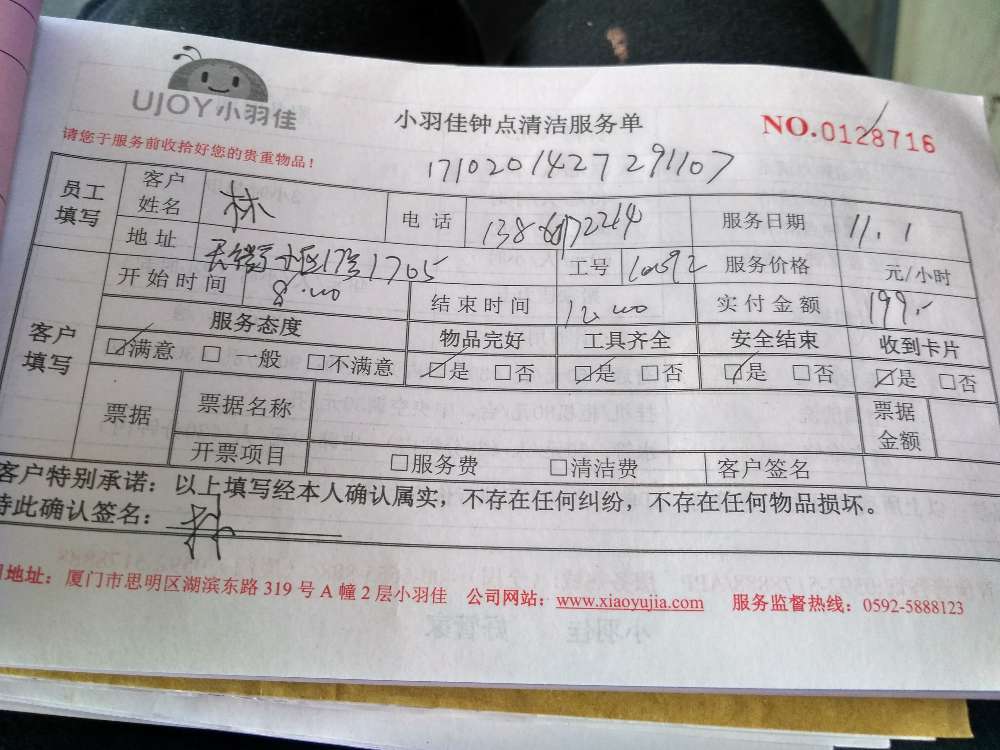 UJOY小羽佳
小羽佳钟点清洁服务单
NO.0128716
请您于服务前收拾好您的贵重物品！
171020142729 1107
员工填写 客户姓名 林 电话 服务日期 11.1
地址 17号1705 工号 服务价格 元/小时
开始时间 8:00 结束时间 12:00 实付金额 199.-
客户填写 服务态度 物品完好 工具齐全 安全结束 收到卡片
☑满意 □一般 □不满意 ☑是 □否 ☑是 □否 ☑是 □否 ☑是 □否
票据 票据名称 票据金额
开票项目 □服务费 □清洁费 客户签名
客户特别承诺：以上填写经本人确认属实，不存在任何纠纷，不存在任何物品损坏。
特此确认签名：林
地址：厦门市思明区湖滨东路 319 号 A 幢 2 层小羽佳 公司网站：www.xiaoyujia.com 服务监督热线：0592-5888123